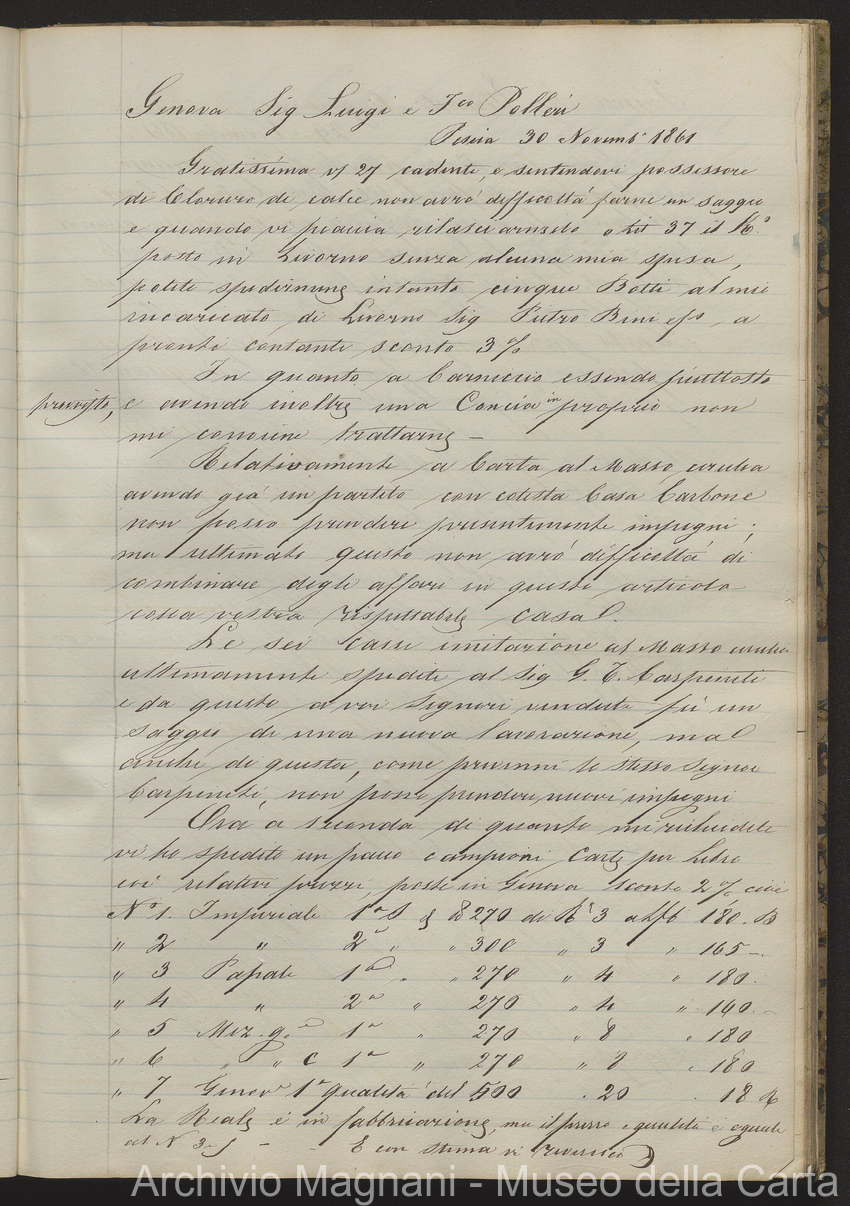 Genova Sig Luigi e Fco Polleri
Pescia 30 Novemb 1861
Gratissima vs 27 cadente, e sentendovi possessore
di Cloruro di calce non avrò difficoltà farne un saggio
e quando vi piaccia rilasciarmelo a Lit 37 il %o
posto in Livorno senza alcuna mia spesa,
potete spedirmene intanto cinque Botti al mio
incaricato di Livorno Sig Pietro Bini e a
pronti contanti sconto 3%
In quanto a Carniccio essendo piuttosto
provvisto, e avendo inoltre una Concia in proprio non
mi conviene trattarne –
Relativamente a Carta al Masso cerulea
avendo già un partito con cotesta Casa Carbone
non posso prendere presentemente impegni ;
ma ultimato questo non avrò difficoltà di
combinare degli affari in questo articolo
colla vostra rispettabile casa.
Le sei Casse imitazione al Masso cerulea
ultimamente spedite al Sig G. T. Carpeneti
e da questo a voi Signori vendute fù un
saggio di una nuova lavorazione, ma
anche di questa, come prevenni lo stesso Signor
Carpeneti, non posso prendere nuovi impegni
Ora a seconda di quanto mi richiedete
vi ho spedito un pacco campioni Carte per Libro
coi relativi prezzi, poste in Genova sconto 2% cioè
No 1. Imperiale 1a S 270 di R 3 a 180. B
" 2 " 2a " " 300 " 3 " 165 –.
" 3 Papale 1a " " 270 " 4 " 180.
" 4 " 2a " 270 " 4 " 140 –
" 5 Mez. 1a " 270 " 8 " 180
" 6 " " C 1a " 270 " 8 " 180
" 7 Genove 1a Qualità del 500 " 20 " 18 R
La Reale è in fabbricazione, ma il prezzo e qualità è eguale
al N 3. – E con stima vi riverisco
Archivio Magnani - Museo della Carta